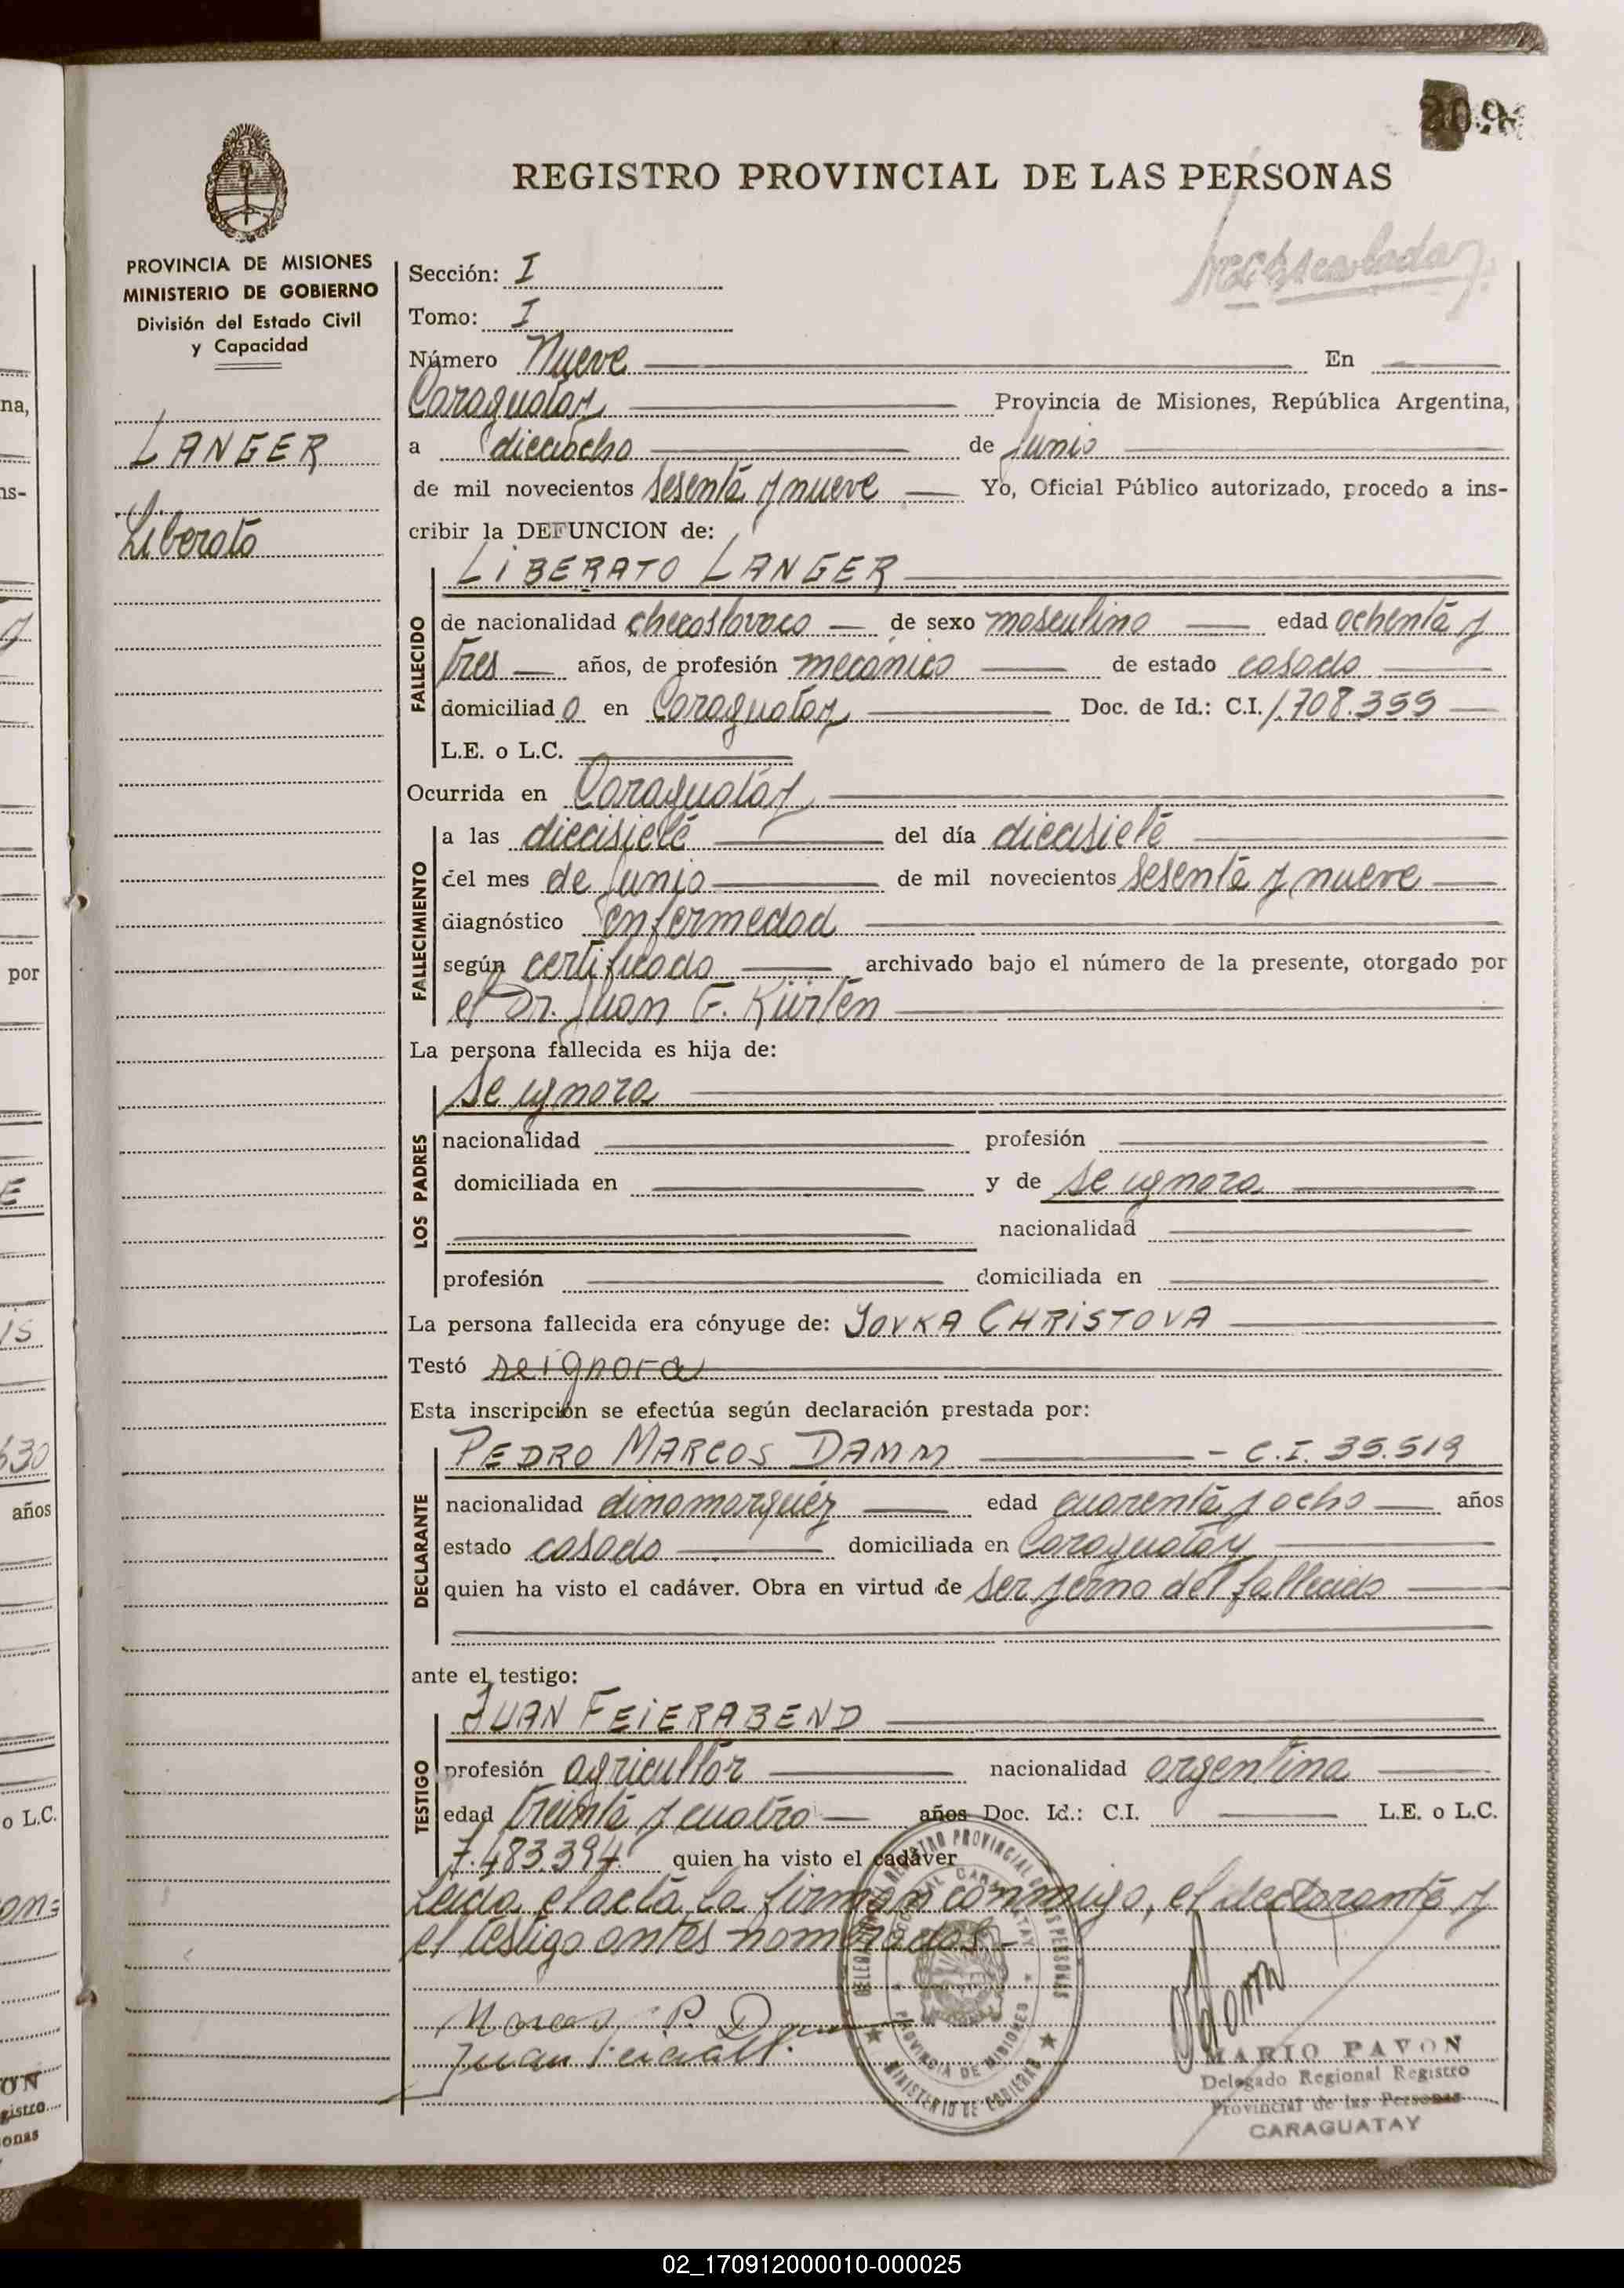 REGISTRO PROVINCIAL DE LAS PERSONAS
PROVINCIA DE MISIONES
MINISTERIO DE GOBIERNO
División del Estado Civil
y Capacidad
LANGER
Liberato
Sección: I
Tomo: I
Número Nueve En
Caraguatay Provincia de Misiones, República Argentina,
a dieciocho de Junio
de mil novecientos sesenta y nueve Yo, Oficial Público autorizado, procedo a ins-
cribir la DEFUNCION de:
LIBERATO LANGER
FALLECIDO
de nacionalidad checoslovaco de sexo masculino edad ochenta y
tres años, de profesión mecánico de estado casado
domiciliado en Caraguatay Doc. de Id.: C.I. 1.708.355
L.E. o L.C.
Ocurrida en Caraguatay
FALLECIMIENTO
a las diecisiete del día diecisiete
del mes de Junio de mil novecientos sesenta y nueve
diagnóstico enfermedad
según certificado archivado bajo el número de la presente, otorgado por
el Dr. Juan G. Kürten
La persona fallecida es hija de:
se ignora
LOS PADRES
nacionalidad profesión
domiciliada en y de se ignora
nacionalidad
profesión domiciliada en
La persona fallecida era cónyuge de: YOVKA CHRISTOVA
Testó se ignora
Esta inscripción se efectúa según declaración prestada por:
PEDRO MARCOS DAMM - C.I. 35.519
DECLARANTE
nacionalidad dinamarquéz edad cuarenta y ocho años
estado casado domiciliada en Caraguatay
quien ha visto el cadáver. Obra en virtud de ser yerno del fallecido
ante el testigo:
JUAN FEIERABEND
TESTIGO
profesión agricultor nacionalidad argentina
edad treinta y cuatro años Doc. Id.: C.I. L.E. o L.C.
7.483.394 quien ha visto el cadáver
Leida el acta la firman conmigo, el declarante y
el testigo antes nombrados.-
MARIO PAVON
Delegado Regional Registro
Provincial de las Personas
CARAGUATAY
PROVINCIA DE MISIONES
MINISTERIO DE GOBIERNO
02_170912000010-000025